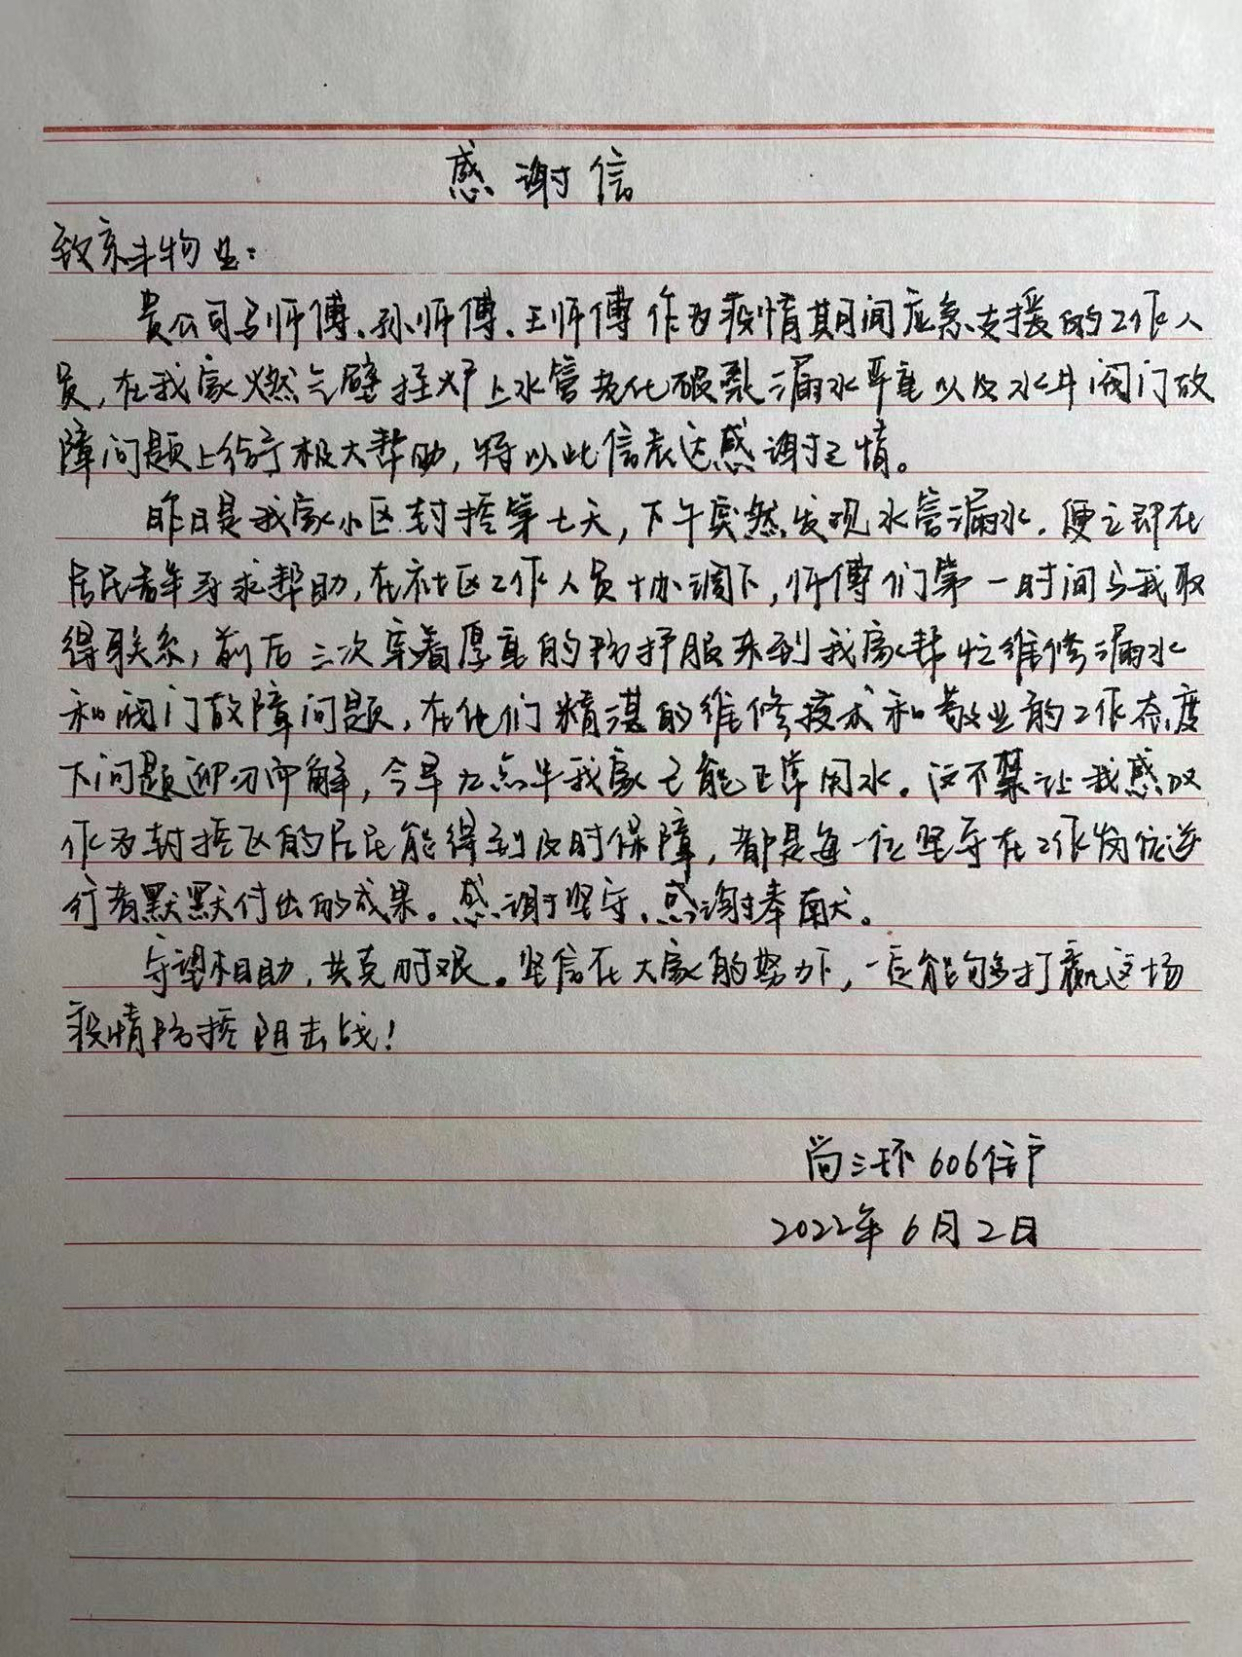 感谢信
致京丰物业：
贵公司马师傅、孙师傅、王师傅作为疫情期间应急支援的工作人
员，在我家燃气壁挂炉上水管老化破裂漏水严重以及水井阀门故
障问题上给予极大帮助，特以此信表达感谢之情。
昨日是我家小区封控第七天，下午突然发现水管漏水，便立即在
居民群寻求帮助，在社区工作人员协调下，师傅们第一时间与我取
得联系，前后三次穿着厚重的防护服来到我家帮忙维修漏水
和阀门故障问题，在他们精湛的维修技术和敬业的工作态度
下问题迎刃而解，今早九点半我家已能正常用水。这不禁让我感叹
作为封控区的居民能得到及时保障，都是每一位坚守在工作岗位逆
行者默默付出的成果。感谢坚守、感谢奉献。
守望相助，共克时艰。坚信在大家的努力下，一定能够打赢这场
疫情防控阻击战！
尚三环606住户
2022年6月2日